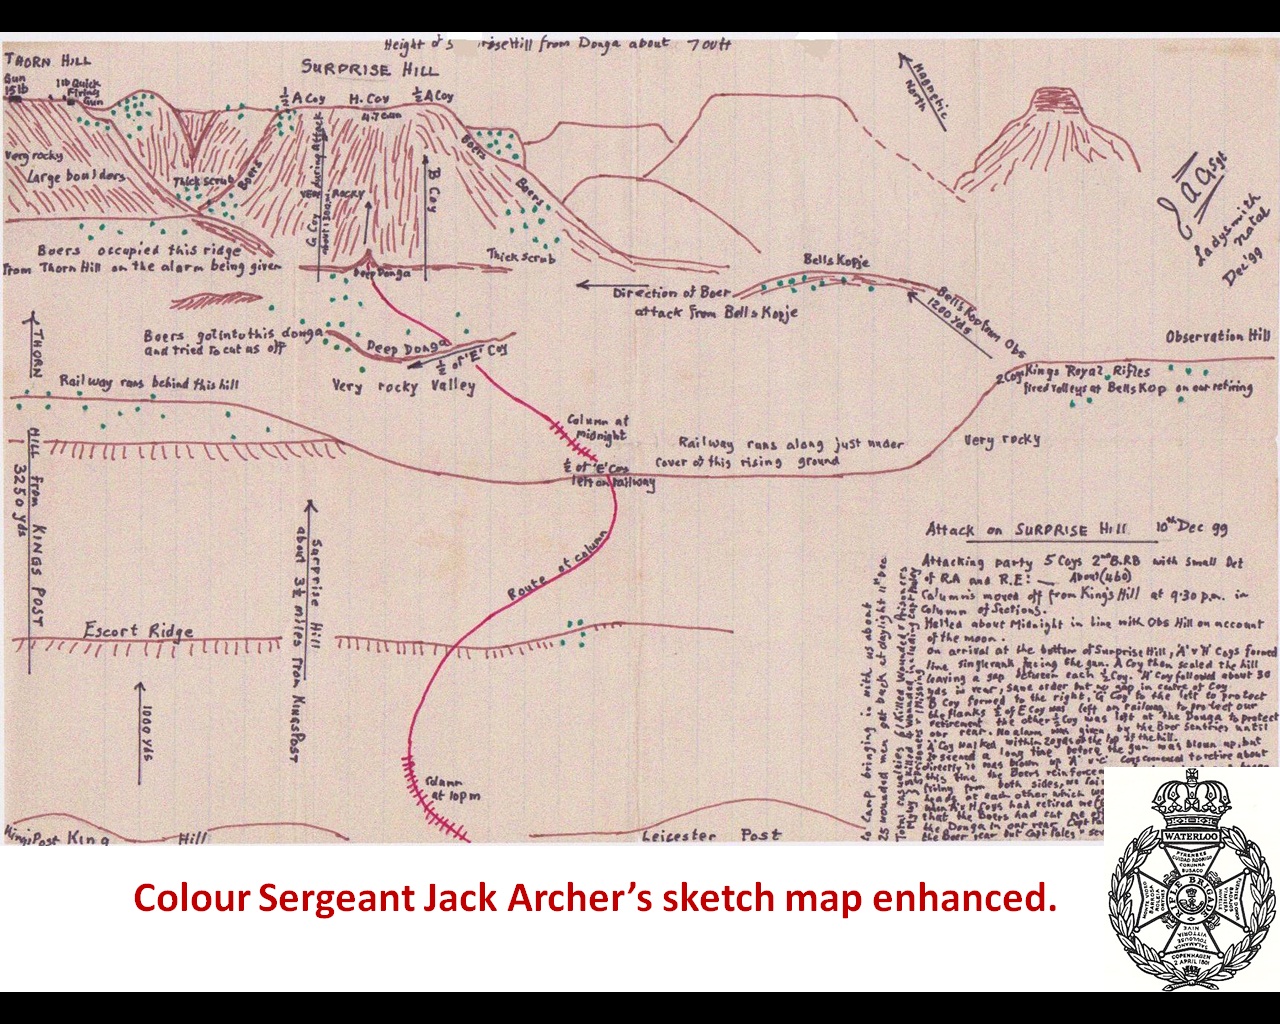 Height of S rise Hill from Donga about 700ft
THORN HILL
SURPRISE HILL
Gun
15lb
1lb Quick
Firing
Gun
½ A Coy
H. Coy
½ A Coy
4.7 Gun
Magnetic
North
Very rocky
Large boulders
Thick scrub
Boers
G Coy during Attack
about 1300
VERY ROCKY
B Coy
Boers
Boers
Thick scrub
Deep Donga
A C Sgt
Ladysmith
Natal
Dec '99
Boers occupied this ridge
from Thorn Hill on the alarm being given
Bells Kopje
Direction of Boer
attack from Bells Kopje
Bells Kop from Obs
1200 yds
Observation Hill
Boers got into this donga
and tried to cut us off
Deep Donga
½ of 'E' Coy
Very rocky Valley
2 Coys Kings Royal Rifles
fired volleys at Bells Kop on our retiring
Railway runs behind this hill
THORN
HILL from KINGS POST
3250 yds
Column at
midnight
½ of 'E' Coy
left on railway
Railway runs along just under
cover of this rising ground
Very rocky
Surprise Hill
about 3½ miles from Kings Post
Route of column
Escort Ridge
1000 yds
Column
at 10pm
Kings Post King Hill
Leicester Post
Attack on SURPRISE Hill 10th Dec 99
Attacking party 5 Coys 2nd B.RB with Small Det
of RA and R.E:— About (460)
Columns moved off from Kings Hill at 9.30 p.m. in
Column of Sections.
Halted about Midnight in line with Obs Hill on account
of the moon.
on arrival at the bottom of Surprise Hill, 'A' & 'H' Coys formed
line single rank facing the gun. A Coy then scaled the hill
leaving a gap between each ½ Coy. 'H' Coy followed about 30
yds in rear, same order but no gap in centre of Coy
B Coy formed to the right, 'G' Coy to the left to protect
the flanks ½ of E Coy was left on railway to protect our
retirement the other ½ Coy was left at the Donga to protect
our rear. No alarm was given by the Boer Sentries until
A' Coy walked within 20 yds of the top of the hill.
It seemed a long time before the gun was blown up, but
directly it was blown up 'A' Coys commenced to retire about
this time the Boers reinforce
firing from both sides, we
heads at each other which
when A & H Coys had retired
that the Boers had cut
the Donga in our rear Capt
the Boer rear but Capt Paley's
to Camp bringing in with us about
25 wounded men got back at daylight 11th Dec
Total casualties
Colour Sergeant Jack Archer’s sketch map enhanced.
WATERLOO
PYRENEES
CIUDAD RODRIGO
CORUNNA
BUSACO
RIFLE BRIGADE
NIVE
VITTORIA
TOULOUSE
SALAMANCA
COPENHAGEN
2 APRIL 1801